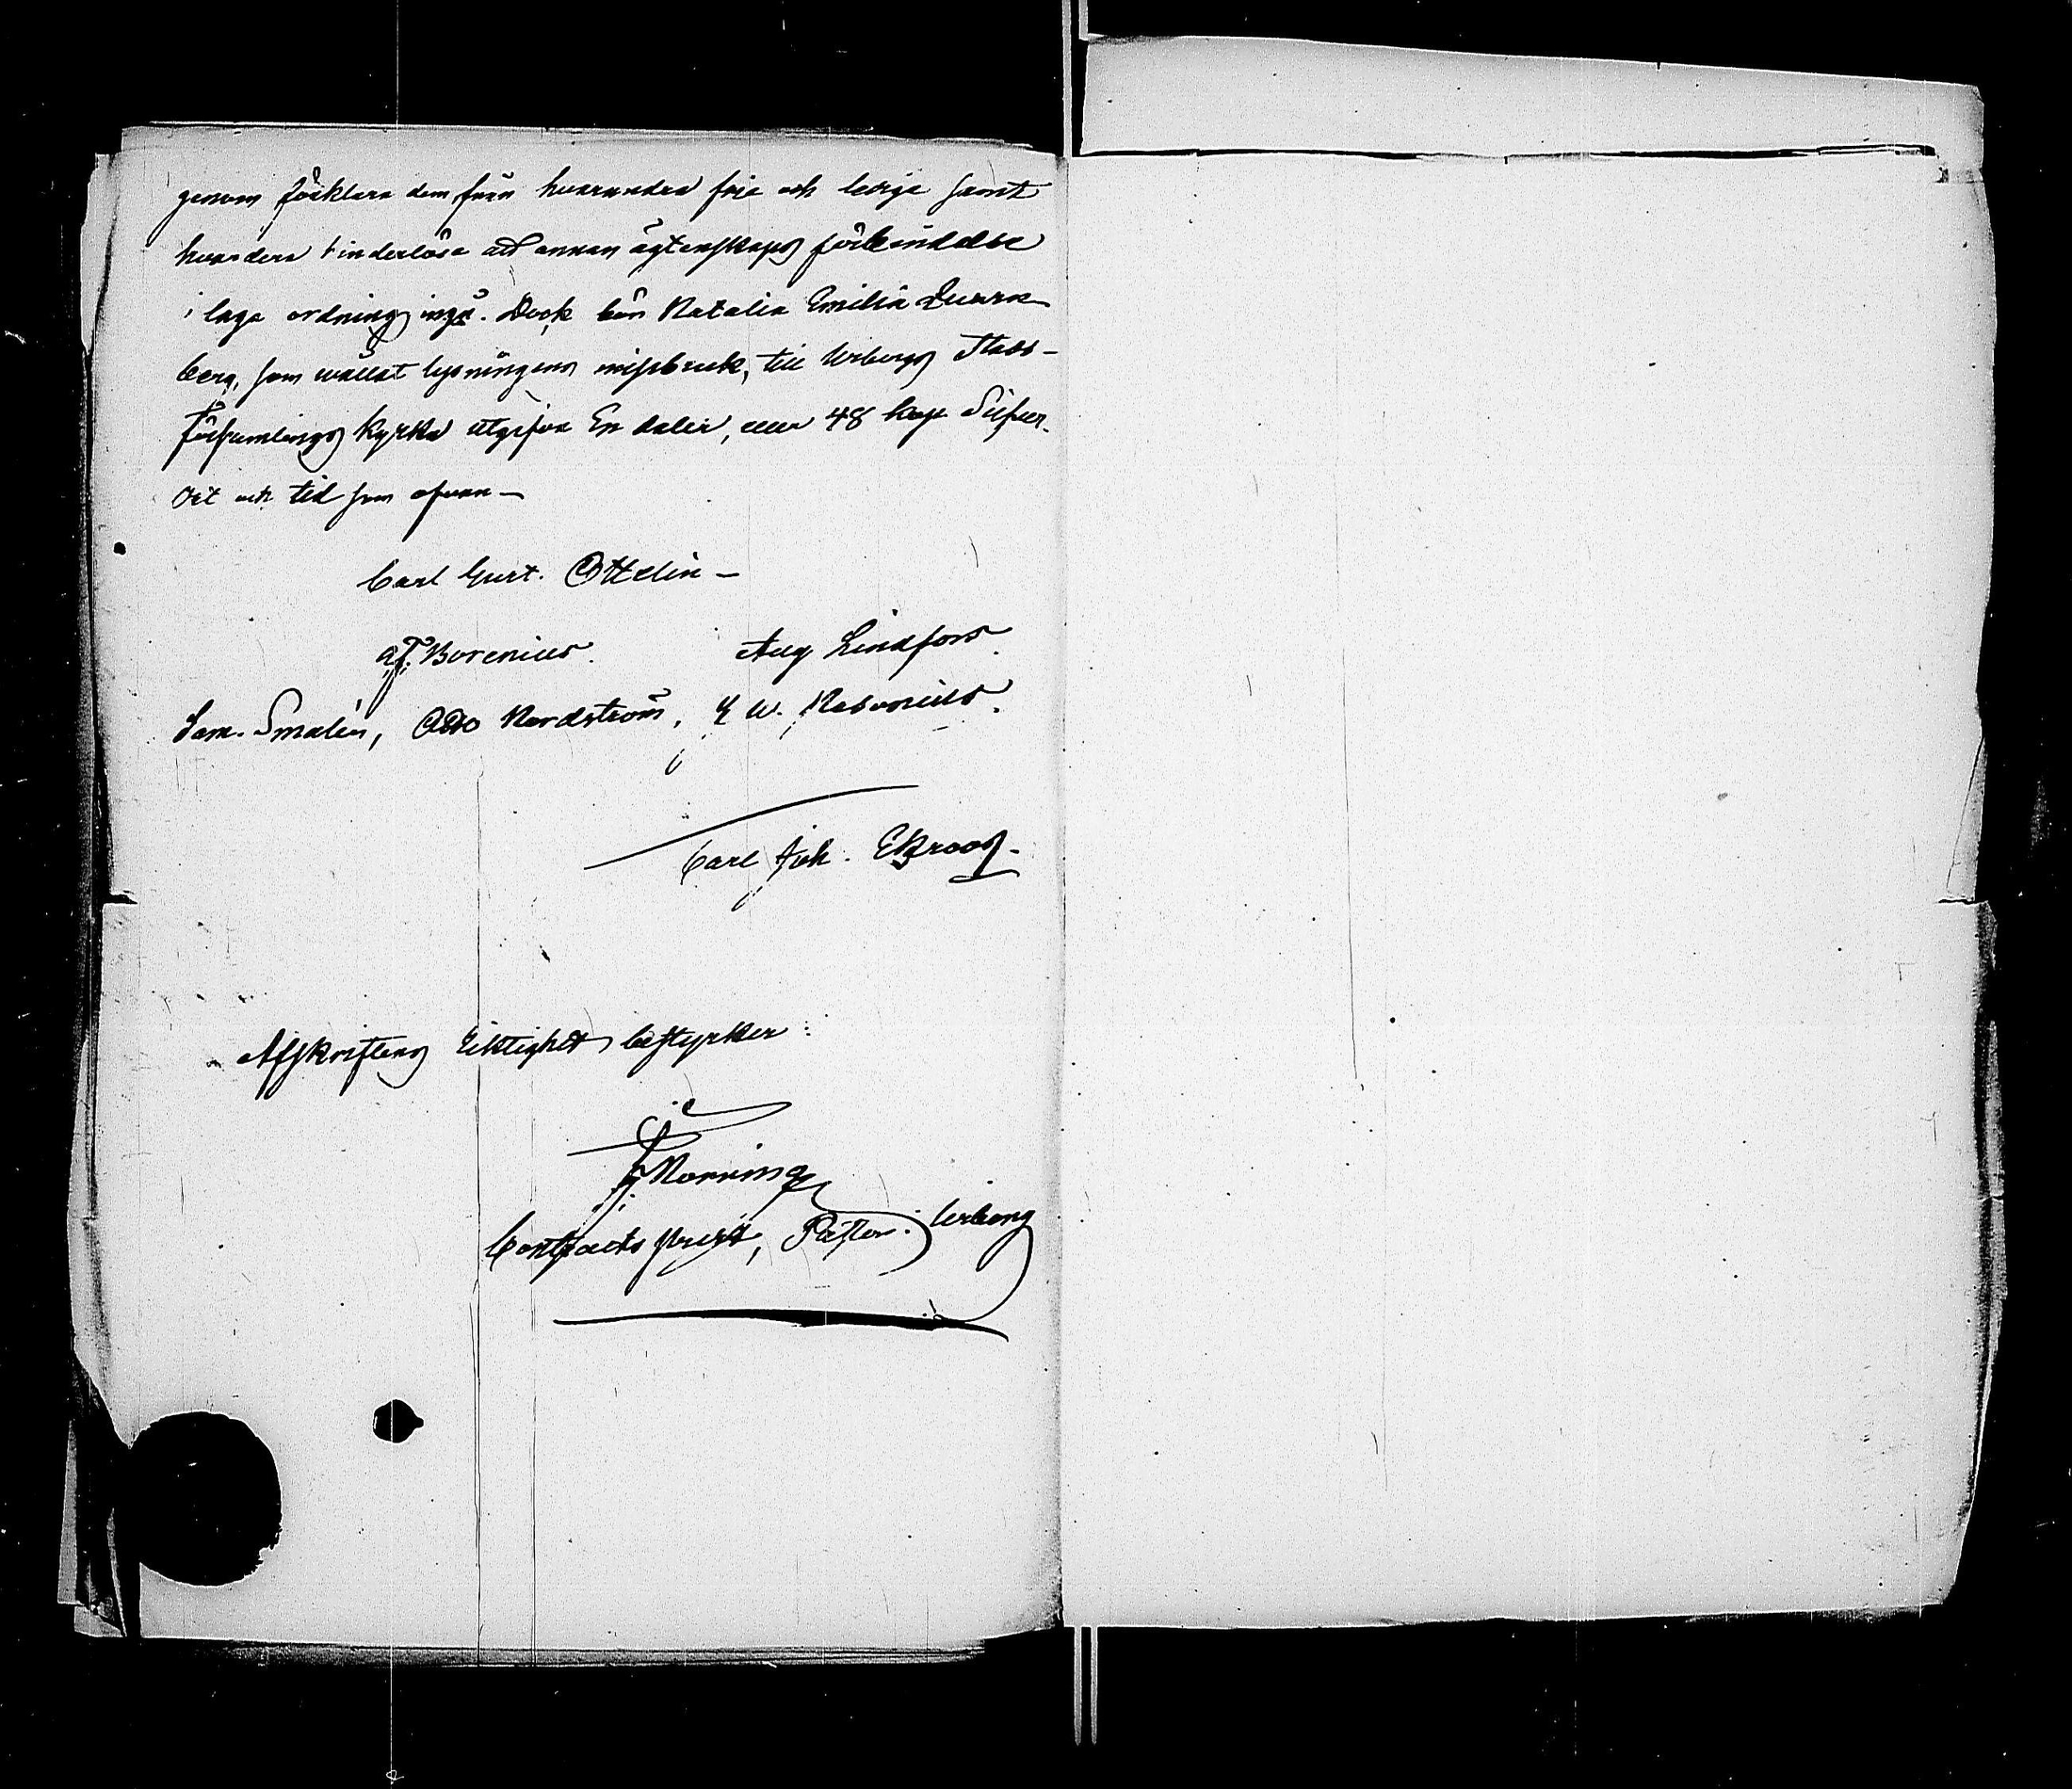 genom förklara dem från hvarandra frie och ledige samt
hvardera hinderlösa att annan ägtenskaps förbindelse
i laga ordning ingå. Dock bör Natalia Emilia Quarn-
berg, som wållat lysningens missbruk, till Wiborgs Stads-
Församlings Kyrka utgifva En daler, eller 48 kop. Silfver.
Ort och tid som ofvan —
Carl Gust. Ottelin —
A. F. Borenius. Aug Lindfors.
Sam. Smalén, Otto Nordström, G W.
Carl Joh. Ekroos.
Afskriftens riktighet bestyrker:
Norring
Contracts prost, Pastor i Wiborg